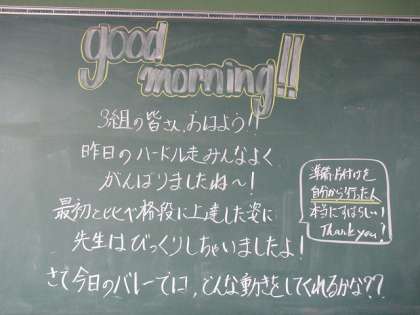 good
morning!!
3組の皆さん、おはよう!!
昨日のハードル走みんなよく
がんばりましたね〜!
最初とくらべ格段に上達した姿に
先生はびっくりしちゃいましたよ!
さて今日のバレーでは、どんな動きをしてくれるかな??
準備片付けを
自分から行った人
本当にすばらしい!
Thank you!